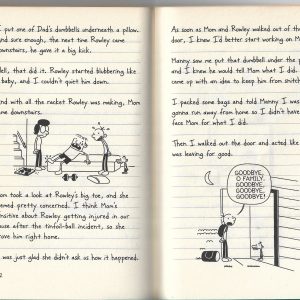 put one of Dad's dumbbells underneath a pillow.
nd sure enough, the next time Rowley came
ownstairs, he gave it a big kick.
ell, that did it. Rowley started blubbering like
baby, and I couldn't quiet him down.
nd with all the racket Rowley was making, Mom
ame downstairs.
om took a look at Rowley's big toe, and she
emed pretty concerned. I think Mom's
nsitive about Rowley getting injured in our
ouse after the tinfoil-ball incident, so she
rove him right home.
was just glad she didn't ask us how it happened.
2
As soon as Mom and Rowley walked out of the
door, I knew I'd better start working on M
Manny saw me put that dumbbell under the p
and I knew he would tell Mom what I did.
come up with an idea to keep him from snitch
I packed some bags and told Manny I was
gonna run away from home so I didn't have
face Mom for what I did.
Then I walked out the door and acted like
was leaving for good.
GOODBYE,
O FAMILY.
GOODBYE,
GOODBYE,
GOODBYE!